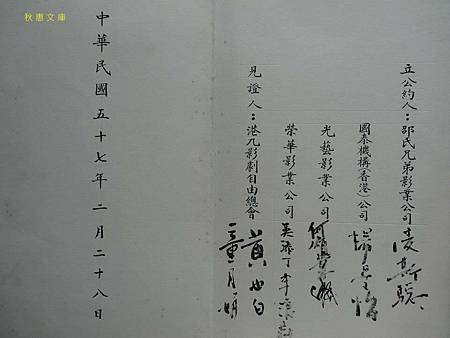 秋惠文庫
立公約人：邵氏兄弟影業公司 凌斯聰
國泰機構(香港)公司
光藝影業公司
榮華影業公司 吳添丁
見證人：港九影劇自由總會 黃也白
童月娟
中華民國五十七年二月二十八日